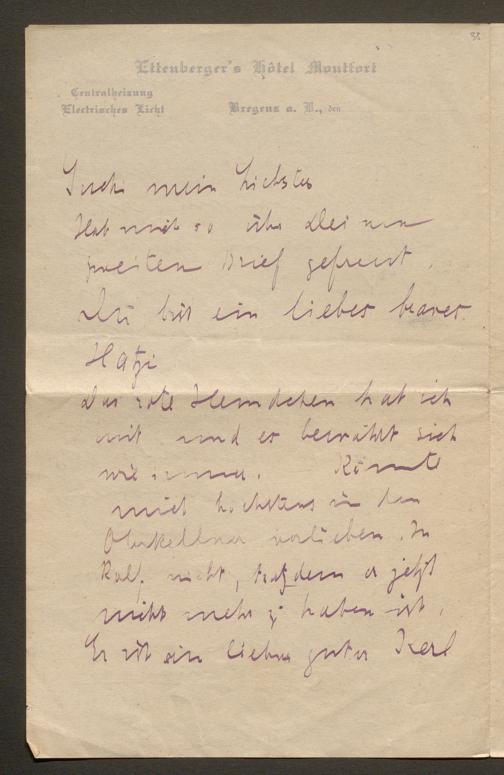 38
Ettenberger's Hôtel Montfort
Centralheizung
Electrisches Licht
Bregenz a. B., den
mein Liebstes
Hab mich so über Deinen
zweiten Brief gefreut.
Du bist ein liebes braves
Hatzi
Das rote Hemdchen hat ich
mit und es bewährt sich
wie immer. Könnte
mich höchstens in den
Oberkellner verlieben. In
Ralf nicht, trotzdem er jetzt
nicht mehr zu haben ist.
Er ist ein lieber guter Kerl